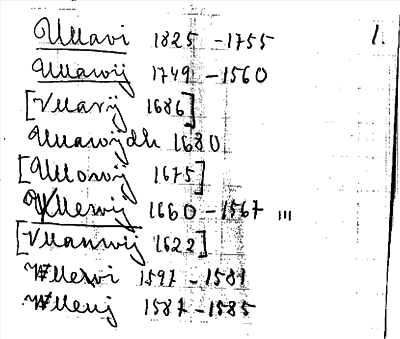 Ullavi 1825 - 1755 1.
Ullawij 1749 - 1560
[Vllavij 1686]
Ullawijdh 1680
[Ullowij 1675]
Ullerwij 1660 - 1567 III
[Vllanwij 1622]
Wllervi 1597 - 1581
Wllerij 1587 - 1585